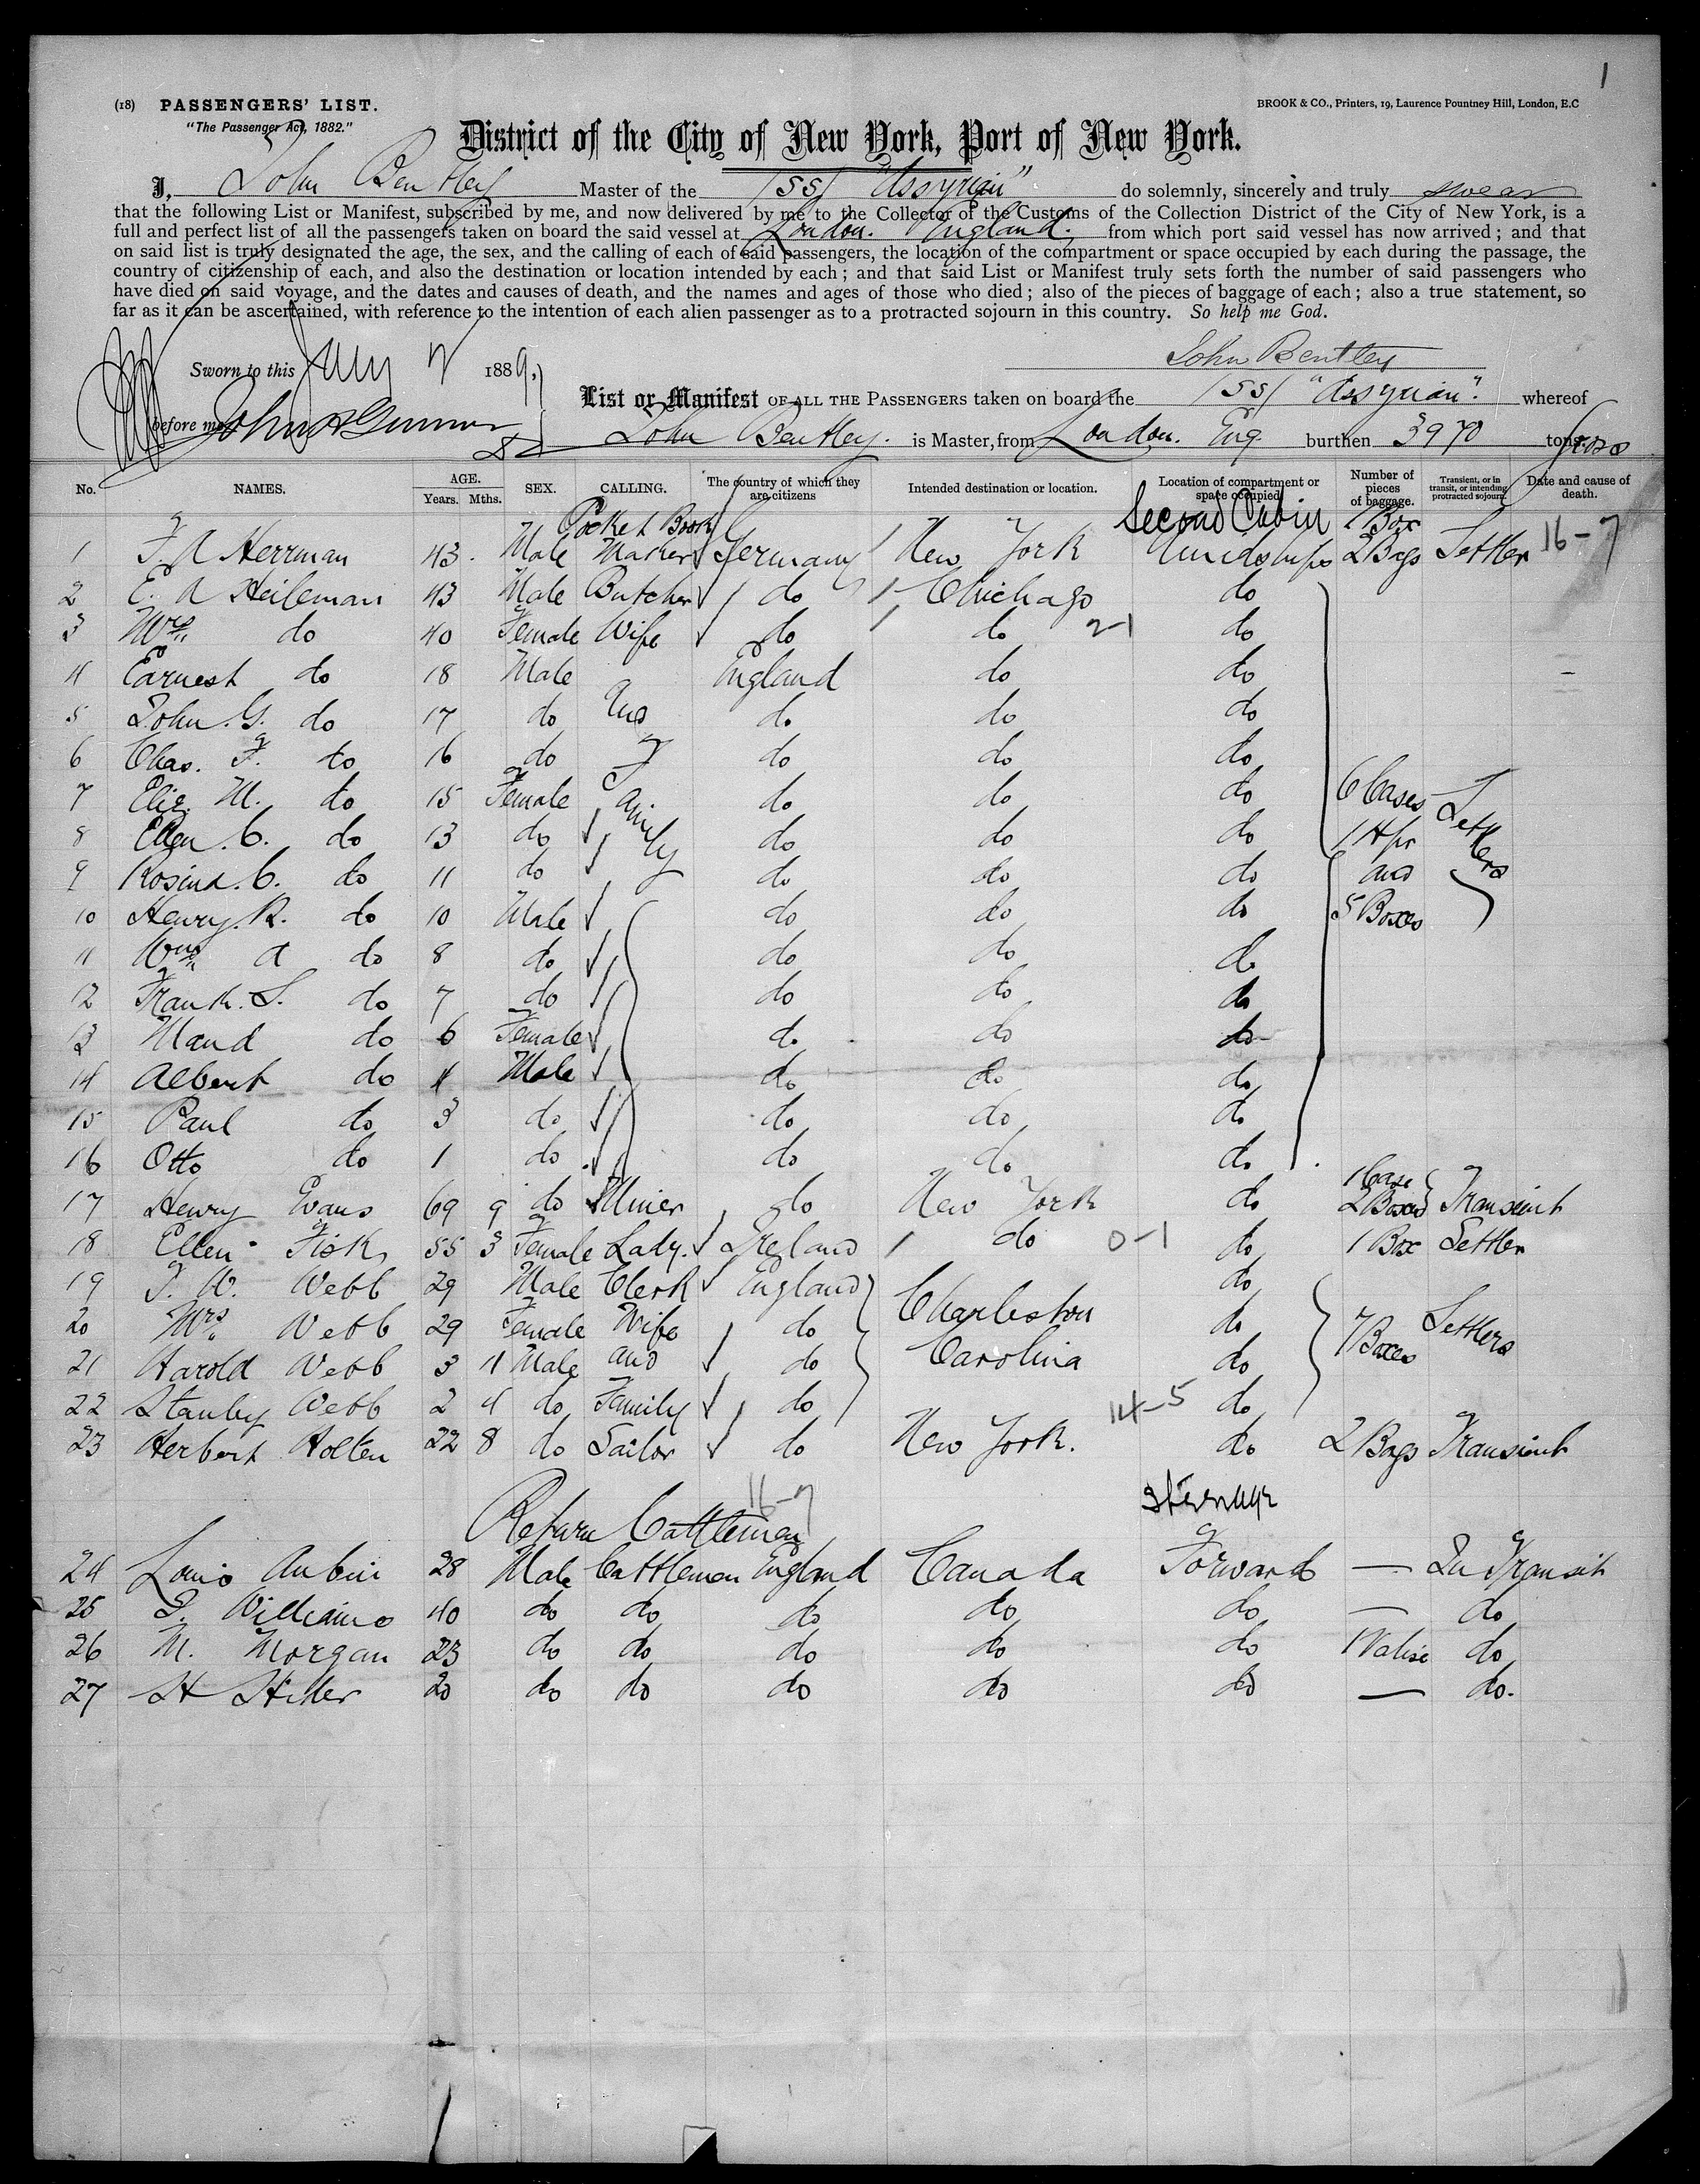 1
(18) PASSENGERS' LIST.
BROOK & CO., Printers, 19, Laurence Pountney Hill, London, E.C
"The Passenger Act, 1882."
District of the City of New York, Port of New York.
I, John Bentley Master of the /SS/ "Assyrian" do solemnly, sincerely and truly swear
that the following List or Manifest, subscribed by me, and now delivered by me to the Collector of the Customs of the Collection District of the City of New York, is a
full and perfect list of all the passengers taken on board the said vessel at London. England. from which port said vessel has now arrived; and that
on said list is truly designated the age, the sex, and the calling of each of said passengers, the location of the compartment or space occupied by each during the passage, the
country of citizenship of each, and also the destination or location intended by each; and that said List or Manifest truly sets forth the number of said passengers who
have died on said voyage, and the dates and causes of death, and the names and ages of those who died; also of the pieces of baggage of each; also a true statement, so
far as it can be ascertained, with reference to the intention of each alien passenger as to a protracted sojourn in this country. So help me God.
John Bentley
Sworn to this 1889.
List or Manifest OF ALL THE PASSENGERS taken on board the /SS/ "Assyrian". whereof
before me
John Bentley. is Master, from London. Eng. burthen 3970 tons. Gross
No. NAMES. AGE. Years. Mths. SEX. CALLING. The country of which they are citizens Intended destination or location. Location of compartment or space occupied Number of pieces of baggage. Transient, or in transit, or intending protracted sojourn. Date and cause of death.
Pocket Book Second Cabin 1 Box
1 F. A Herrman 43 Male Maker Germany New York Amidships 2 Bags Settler 16-7
2 E. A Heileman 43 Male Butcher do Chichago do
3 Mrs do 40 Female Wife do do 2-1 do
4 Earnest do 18 Male England do do
5 John. G. do 17 do and do do do
6 Chas. F. do 16 do Family do do do
7 Eliz. M. do 15 Female do do do 6 Cases Settlers
8 Ellen. C. do 13 do do do do 1 Hpr
9 Rosina. C. do 11 do do do do and
10 Henry. R. do 10 Male do do do 5 Boxes
11 Wm A do 8 do do do do
12 Frank. S. do 7 do do do do
13 Maud do 6 Female do do do
14 Albert do 4 Male do do do
15 Paul do 3 do do do do
16 Otto do 1 do do do do
1 Case
17 Henry Evans 69 9 do Miner do New York do 2 Boxes Transient
18 Ellen Fisk 55 3 Female Lady. Ireland do 0-1 do 1 Box Settler
19 J. W. Webb 29 Male Clerk England Charleston do
20 Mrs Webb 29 Female Wife do Carolina do 7 Boxes Settlers
21 Harold Webb 3 11 Male and do do
22 Stanley Webb 2 4 do Family do 14-5 do
23 Herbert Holten 22 8 do Sailor do New York. do 2 Bags Transient
16-7
Return Cattlemen Steerage
24 Louis Aubin 28 Male Cattleman England Canada Forward — In Transit
25 J. Williams 40 do do do do do — do
26 M. Morgan 23 do do do do do 1 Valise do
27 H 20 do do do do do — do.